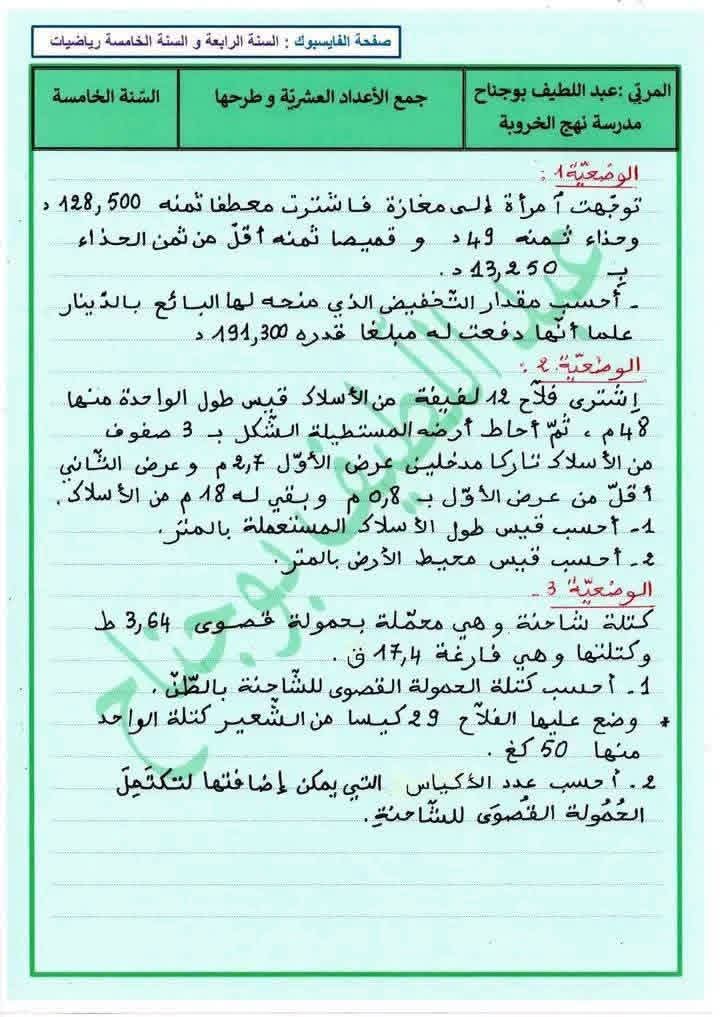 صفحة الفايسبوك : السنة الرابعة و السنة الخامسة رياضيات
المربّي :عبد اللطيف بوجناح
مدرسة نهج الخروبة
جمع الأعداد العشريّة و طرحها
السّنة الخامسة
الوضعيّة 1 :
توجّهت امرأة إلى مغازة فاشترت معطفا ثمنه 128,500 د
وحذاء ثمنه 49 د و قميصا ثمنه أقلّ من ثمن الحذاء
بـ 13,250 د.
ـ أحسب مقدار التّخفيض الذي منحه لها البائع بالدّينار
علما أنّها دفعت له مبلغا قدره 191,300 د
الوضعيّة 2 :
إشترى فلاّح 12 لفيفة من الأسلاك قيس طول الواحدة منها
48 م ، ثمّ أحاط أرضه المستطيلة الشّكل بـ 3 صفوف
من الأسلاك تاركا مدخلين عرض الأوّل 2,7 م و عرض الثّاني
أقلّ من عرض الأوّل بـ 0,8 م و بقي له 18 م من الأسلاك.
1- أحسب قيس طول الأسلاك المستعملة بالمتر.
2- أحسب قيس محيط الأرض بالمتر.
الوضعيّة 3 -
كتلة شاحنة و هي محمّلة بحمولة قصوى 3,64 ط
وكتلتها و هي فارغة 17,4 ق.
1- أحسب كتلة الحمولة القصوى للشّاحنة بالطّنّ.
* وضع عليها الفلاّح 29 كيسا من الشّعير كتلة الواحد
منها 50 كغ.
2- أحسب عدد الأكياس التي يمكن إضافتها لتكتَمِلَ
الحُمُولة القُصوَى للشّاحنةِ.
عبد اللطيف بوجناح